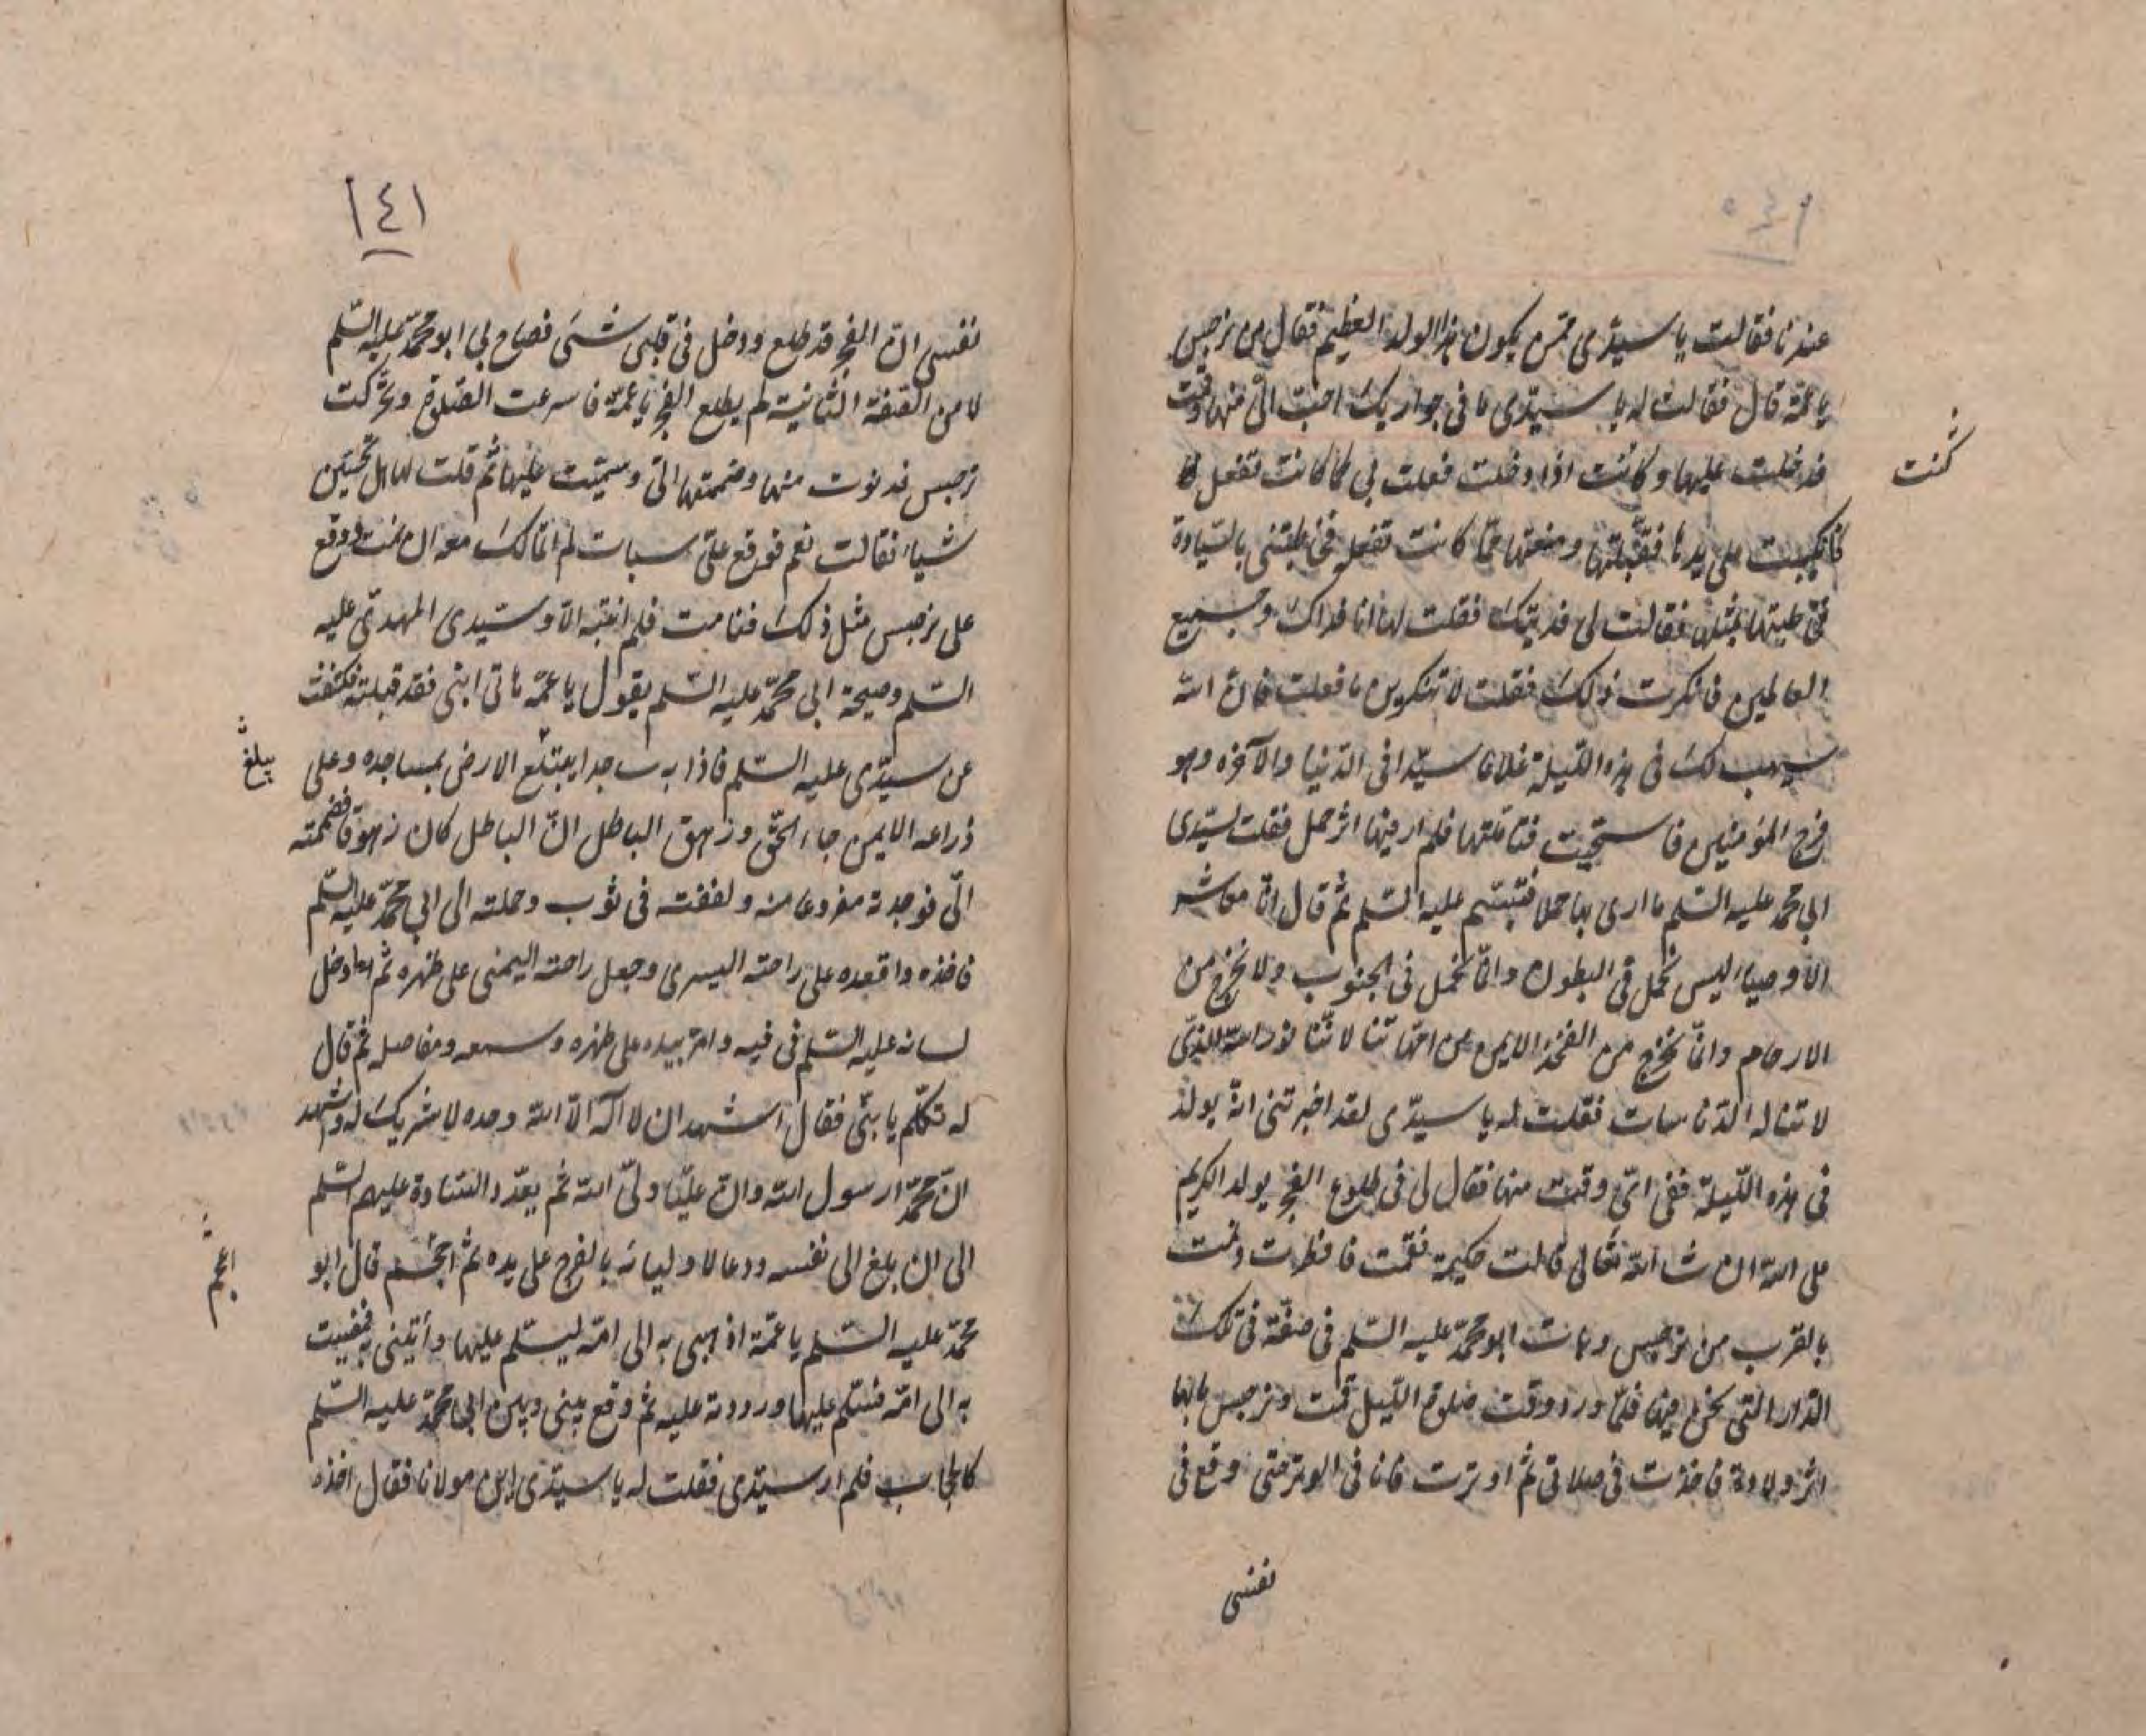 ١٤٠
عندنا فقالت يا سيدى ممن يكون هذا الولد العظيم فقال من نرجس
يا عمة قال فقالت له يا سيدى ما فى جواريك احب الى منها وقمت
فدخلت عليها وكانت اذا دخلت فعلت بى كما كانت تفعل
كنت
فانكببت على يدها فقبلتها ومنعتها مما كانت تفعله فخاطبتنى بالسيادة
فخاطبتها بمثلها فقالت لى فديتك فقلت لها انا فداك وجميع
العالمين فانكرت ذلك فقلت لا تنكرين ما فعلت فان الله
سيهب لك فى هذه الليلة غلاما سيدا فى الدنيا والآخرة وهو
فرج المؤمنين فاستحيت فتاملتها فلم ار فيها اثر حمل فقلت لسيدى
ابى محمد عليه السلم ما ارى بها حملا فتبسم عليه السلم ثم قال انا معاشر
الاوصياء ليس نحمل فى البطون وانما نحمل فى الجنوب ولا نخرج من
الارحام وانما نخرج من الفخذ الايمن من امهاتنا لاننا نور الله الذى
لا تناله الدناسات فقلت له يا سيدى لقد اخبرتنى انه يولد
فى هذه الليلة ففى اى وقت منها فقال لى فى طلوع الفجر يولد الكريم
على الله ان شاء الله تعالى قالت حكيمة فقمت فافطرت ونمت
بالقرب من نرجس وبات ابو محمد عليه السلم فى صفة فى تلك
الدار التى نحن فيها فلما ورد وقت صلوة الليل قمت ونرجس ما بها
اثر ولادة فاخذت فى صلاتى ثم اوترت فانا فى الوتر حتى وقع فى
نفسى
١٤١
نفسى ان الفجر قد طلع ودخل فى قلبى شىء فصاح بى ابو محمد عليه السلم
لا من الصفة الثانية لم يطلع الفجر يا عمة فاسرعت الصلوة وتحركت
نرجس فدنوت منها وضممتها الى وسميت عليها ثم قلت لها هل تحسين
شيئا فقالت نعم فوقع على سبات لم اتمالك معه ان نمت ووقع
على نرجس مثل ذلك فنامت فلم انتبه الا وسيدى المهدى عليه
السلم وصيحة ابى محمد عليه السلم يقول يا عمة هاتى ابنى فقد قبلته فكشفت
عن سيدى عليه السلم فاذا به ساجدا يبتلع الارض بمساجده وعلى
يبلغ
ذراعه الايمن جاء الحق وزهق الباطل ان الباطل كان زهوقا فضممته
الى فوجدته مفروغا منه ولففته فى ثوب وحملته الى ابى محمد عليه السلم
فاخذه واقعده على راحته اليسرى وجعل راحته اليمنى على ظهره ثم ادخل
لسانه عليه السلم فى فيه وامر بيده على ظهره وسمعه ومفاصله ثم قال
له تكلم يا بنى فقال اشهد ان لا اله الا الله وحده لا شريك له واشهد
ان محمدا رسول الله وان عليا ولى الله ثم يعدد السادة عليهم السلم
الى ان بلغ الى نفسه ودعا لاوليائه بالفرج على يده ثم احجم قال ابو
محمد عليه السلم يا عمة اذهبى به الى امه ليسلم عليها وأتينى به فمضيت
به الى امه فسلم عليها ورددته عليه ثم وقع بينى وبين ابى محمد عليه السلم
كالحجاب فلم ار سيدى فقلت له يا سيدى اين مولانا فقال اخذه